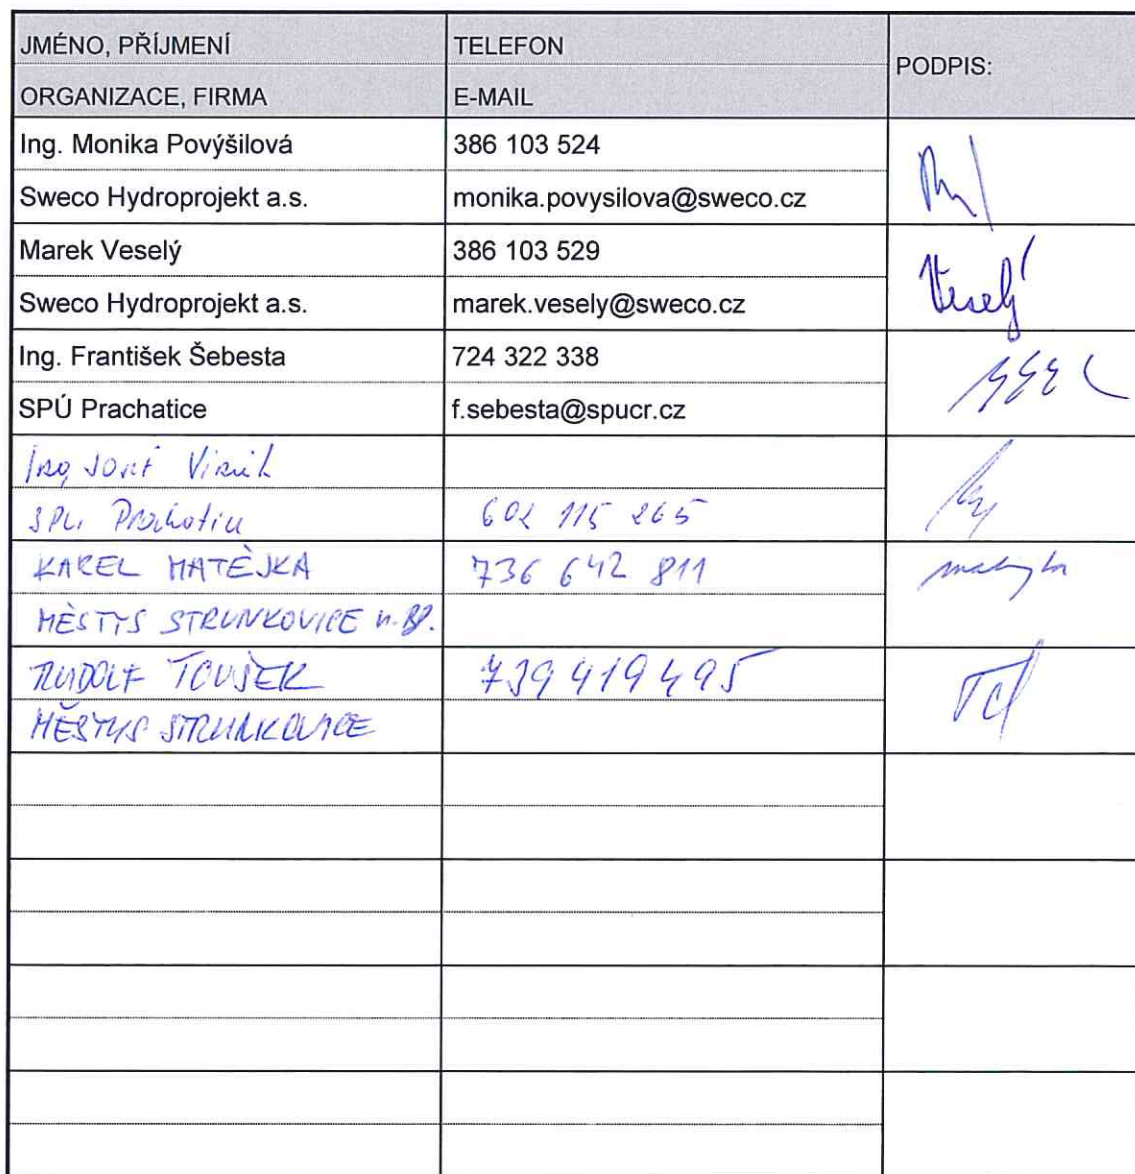 JMÉNO, PŘÍJMENÍ TELEFON
PODPIS:
ORGANIZACE, FIRMA E-MAIL
Ing. Monika Povýšilová 386 103 524
Sweco Hydroprojekt a.s. monika.povysilova@sweco.cz
Marek Veselý 386 103 529
Veselý
Sweco Hydroprojekt a.s. marek.vesely@sweco.cz
Ing. František Šebesta 724 322 338
SPÚ Prachatice f.sebesta@spucr.cz
Ing
Prachatice 602 115 265
KAREL MATĚJKA 736 642 811
MĚSTYS STRUNKOVICE n. Bl.
RUDOLF TOUŠEK 739 419 495
MĚSTYS STRUNKOVICE